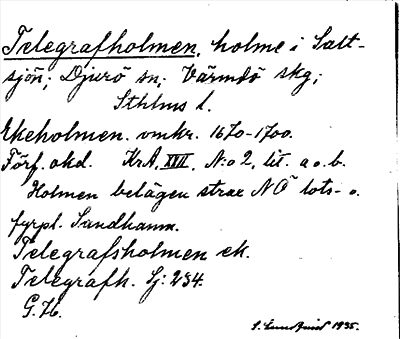 Telegrafholmen, holme i Salt-
sjön; Djurö sn; Värmdö skg;
Sthlms l.
Ekeholmen. omkr. 1670-1700.
Förf. okd. KrA. XVII. No 2, lit. a o. b.
Holmen belägen strax NÖ lots- o.
fyrpl. Sandhamn.
Telegrafsholmen ek.
Telegrafh. Sj: 234.
G. H.
S. Lundqvist 1935.